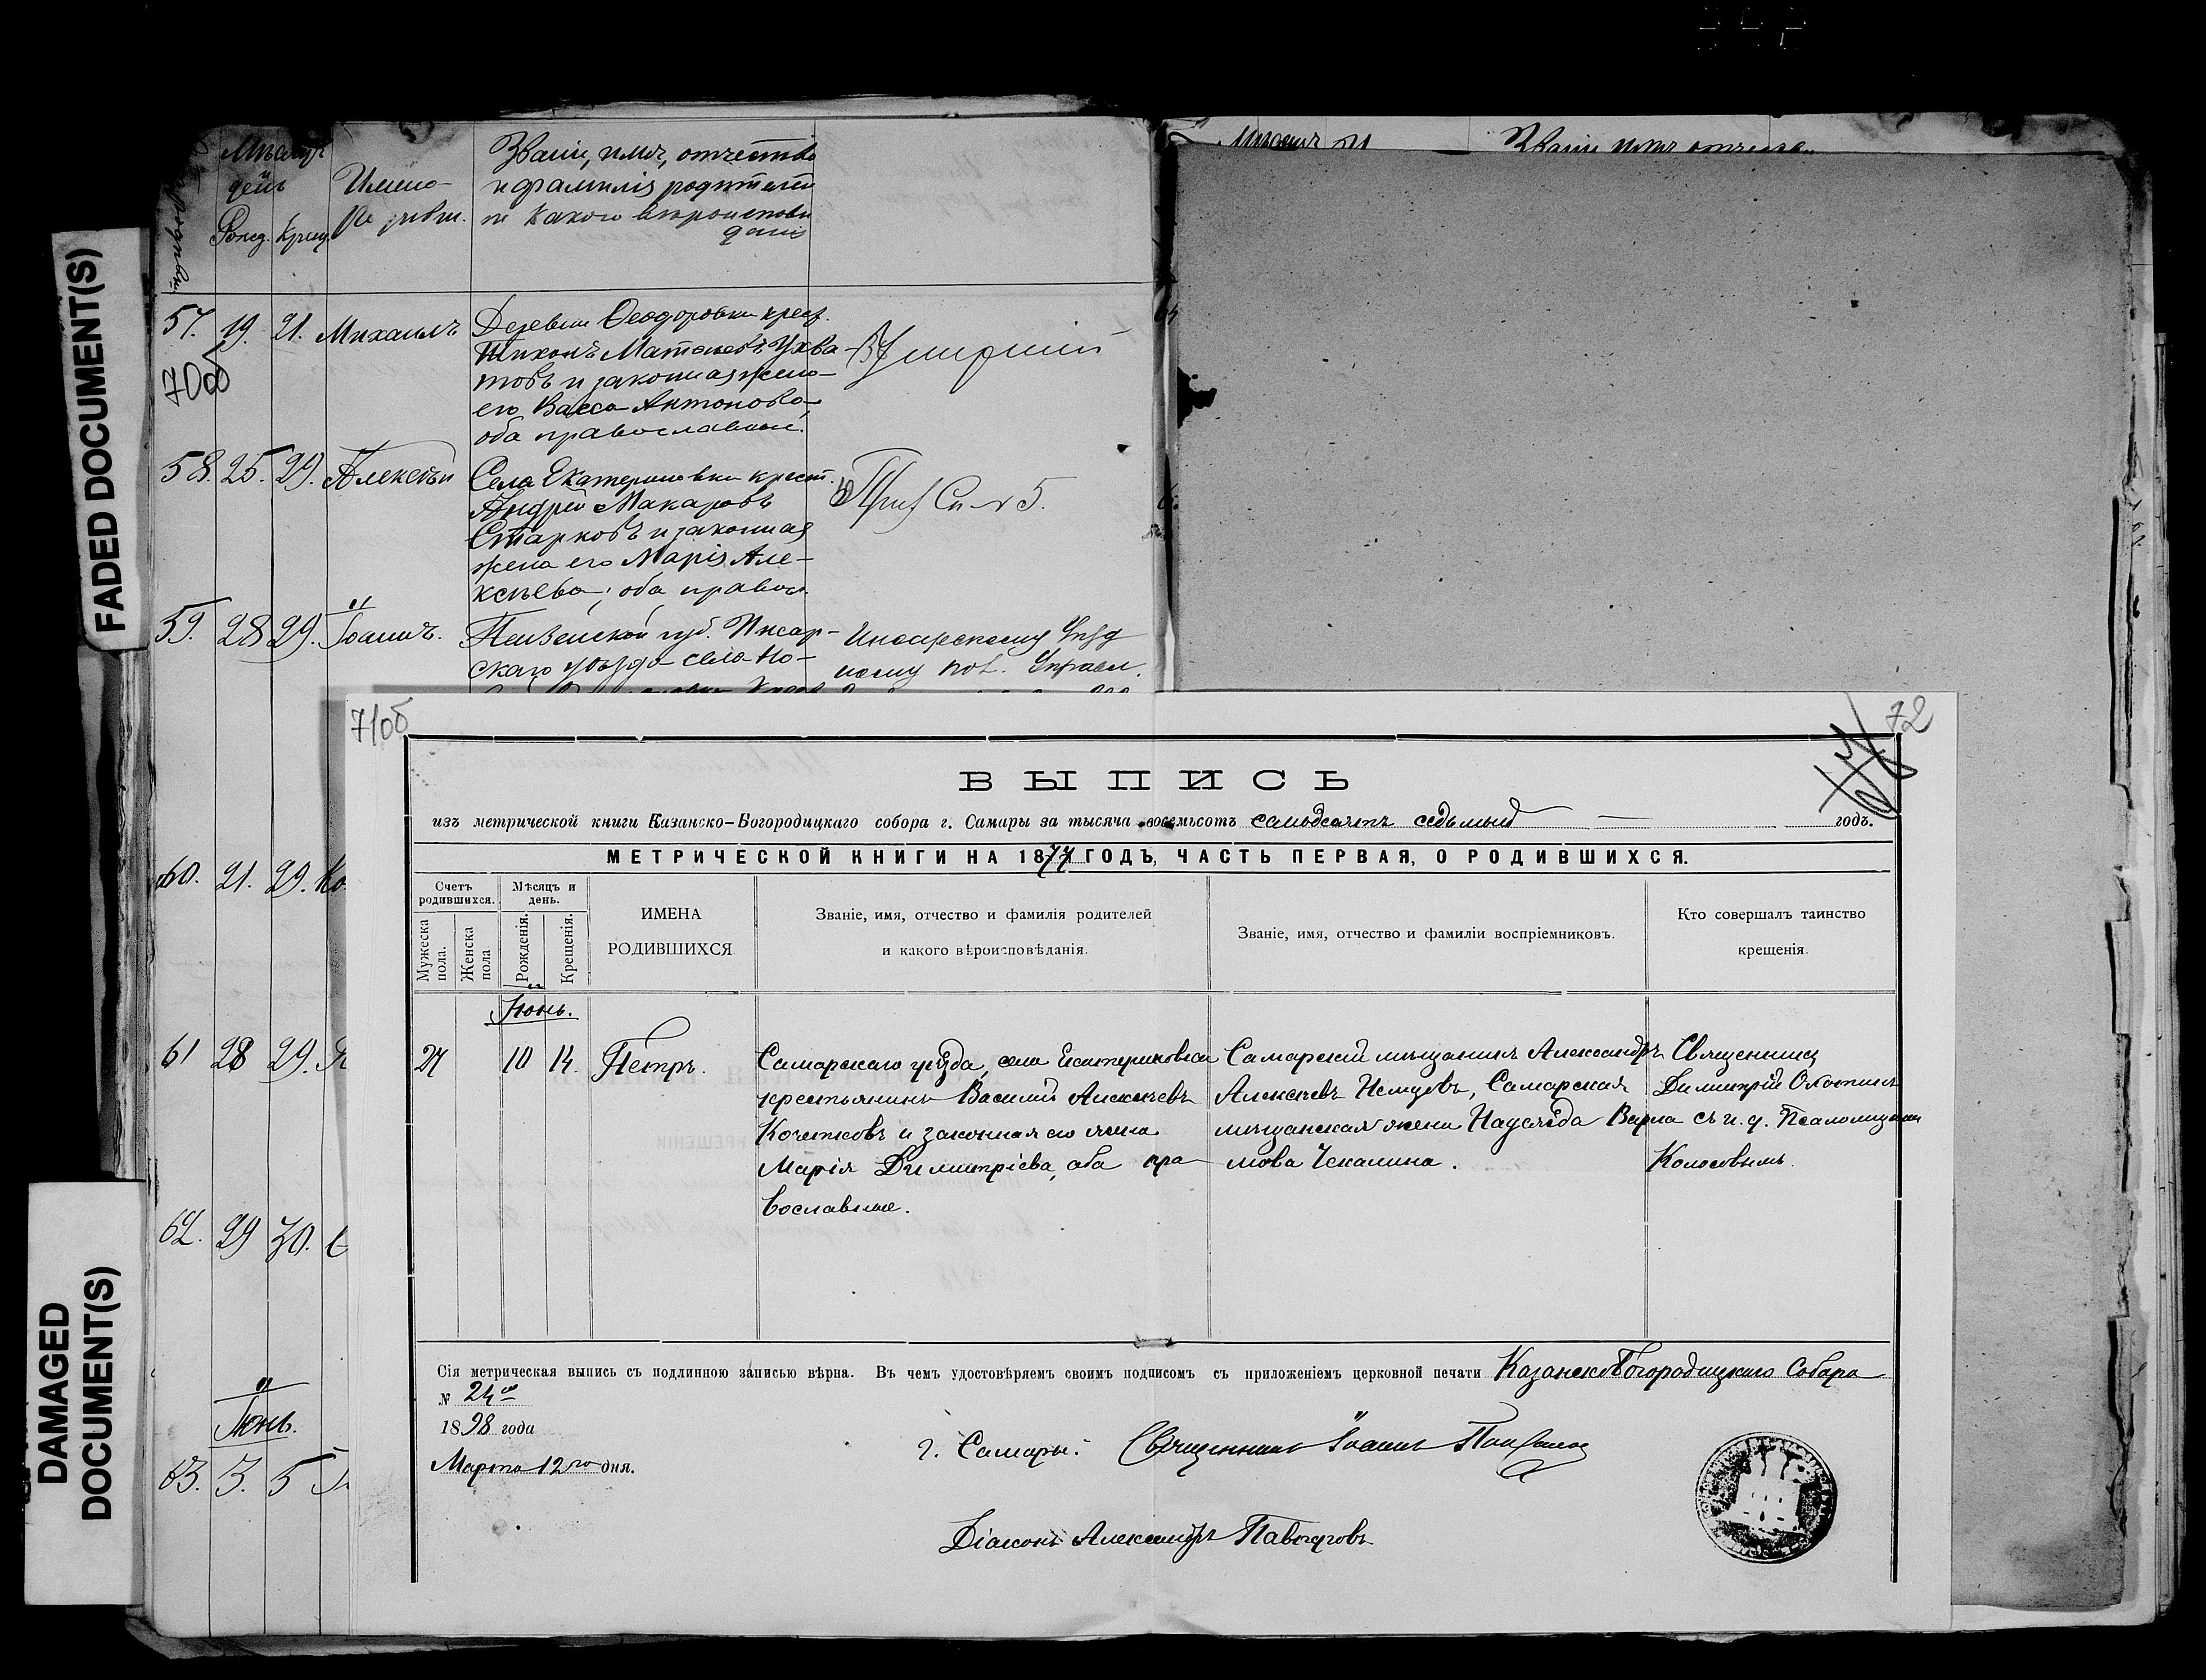 FADED DOCUMENT(S)
DAMAGED
DOCUMENT(S)
Мѣсяцъ
и
день
Рожд. Крещ.
Имено-
Званіе, имя, отчество
и фамилія родителей
и какого вѣроисповѣ
данія
57. 19. 21. Михаилъ
Деревни Ѳеодоровки крест.
Тихонъ Матѳеевъ Ухва-
товъ и законная жена
его Васса Антонова,
оба православные.
Умершій
70об
58. 25. 29. Алексѣй
Села Екатериновки крест.
Андрей Макаровъ
Старковъ и законная
жена его Марія Але-
ксѣева; оба правосл.
59. 28 29. Іоаннъ.
Пензенской губ. Инсар-
скаго уѣзда села Но-
Инсарскому Уѣзд
ному
60. 21. 29. Ко
61 28 29.
62. 29 30.
Іюнь.
63. 3. 5
Званіе имя отчеств
71об
72
ВЫПИСЬ
изъ метрической книги Казанско-Богородицкаго собора г. Самары за тысяча восемьсотъ семьдесятъ седьмый годъ.
МЕТРИЧЕСКОЙ КНИГИ НА 1877 ГОДЪ, ЧАСТЬ ПЕРВАЯ, О РОДИВШИХСЯ.
Счетъ
родившихся.
Мужеска
пола.
Женска
пола
Мѣсяцъ и
день.
Рожденія.
Крещенія.
ИМЕНА
РОДИВШИХСЯ
Званіе, имя, отчество и фамилія родителей
и какого вѣроисповѣданія.
Званіе, имя, отчество и фамиліи воспріемниковъ.
Кто совершалъ таинство
крещенія.
Іюнь.
27 10 14. Петръ.
Самарскаго уѣзда, села Екатериновки
крестьянинъ Василій Алексѣевъ
Кочетковъ и законная его жена
Марія Димитріева, оба пра-
вославные.
Самарскій мѣщанинъ Александръ
Алексѣевъ Немцовъ, Самарская
мѣщанская жена Надежда Варла
мова Чекалина.
Священникъ
Димитрій Охотинъ
съ и. д. Псаломщика
Колосовымъ.
Сія метрическая выпись съ подлинною записью вѣрна. Въ чемъ удостовѣряемъ своимъ подписомъ съ приложеніемъ церковной печати Казанско Богородицкаго Собора
№ 24
1898 года
Марта 12го дня.
г. Самары: Священникъ Іоаннъ
Діаконъ Александръ